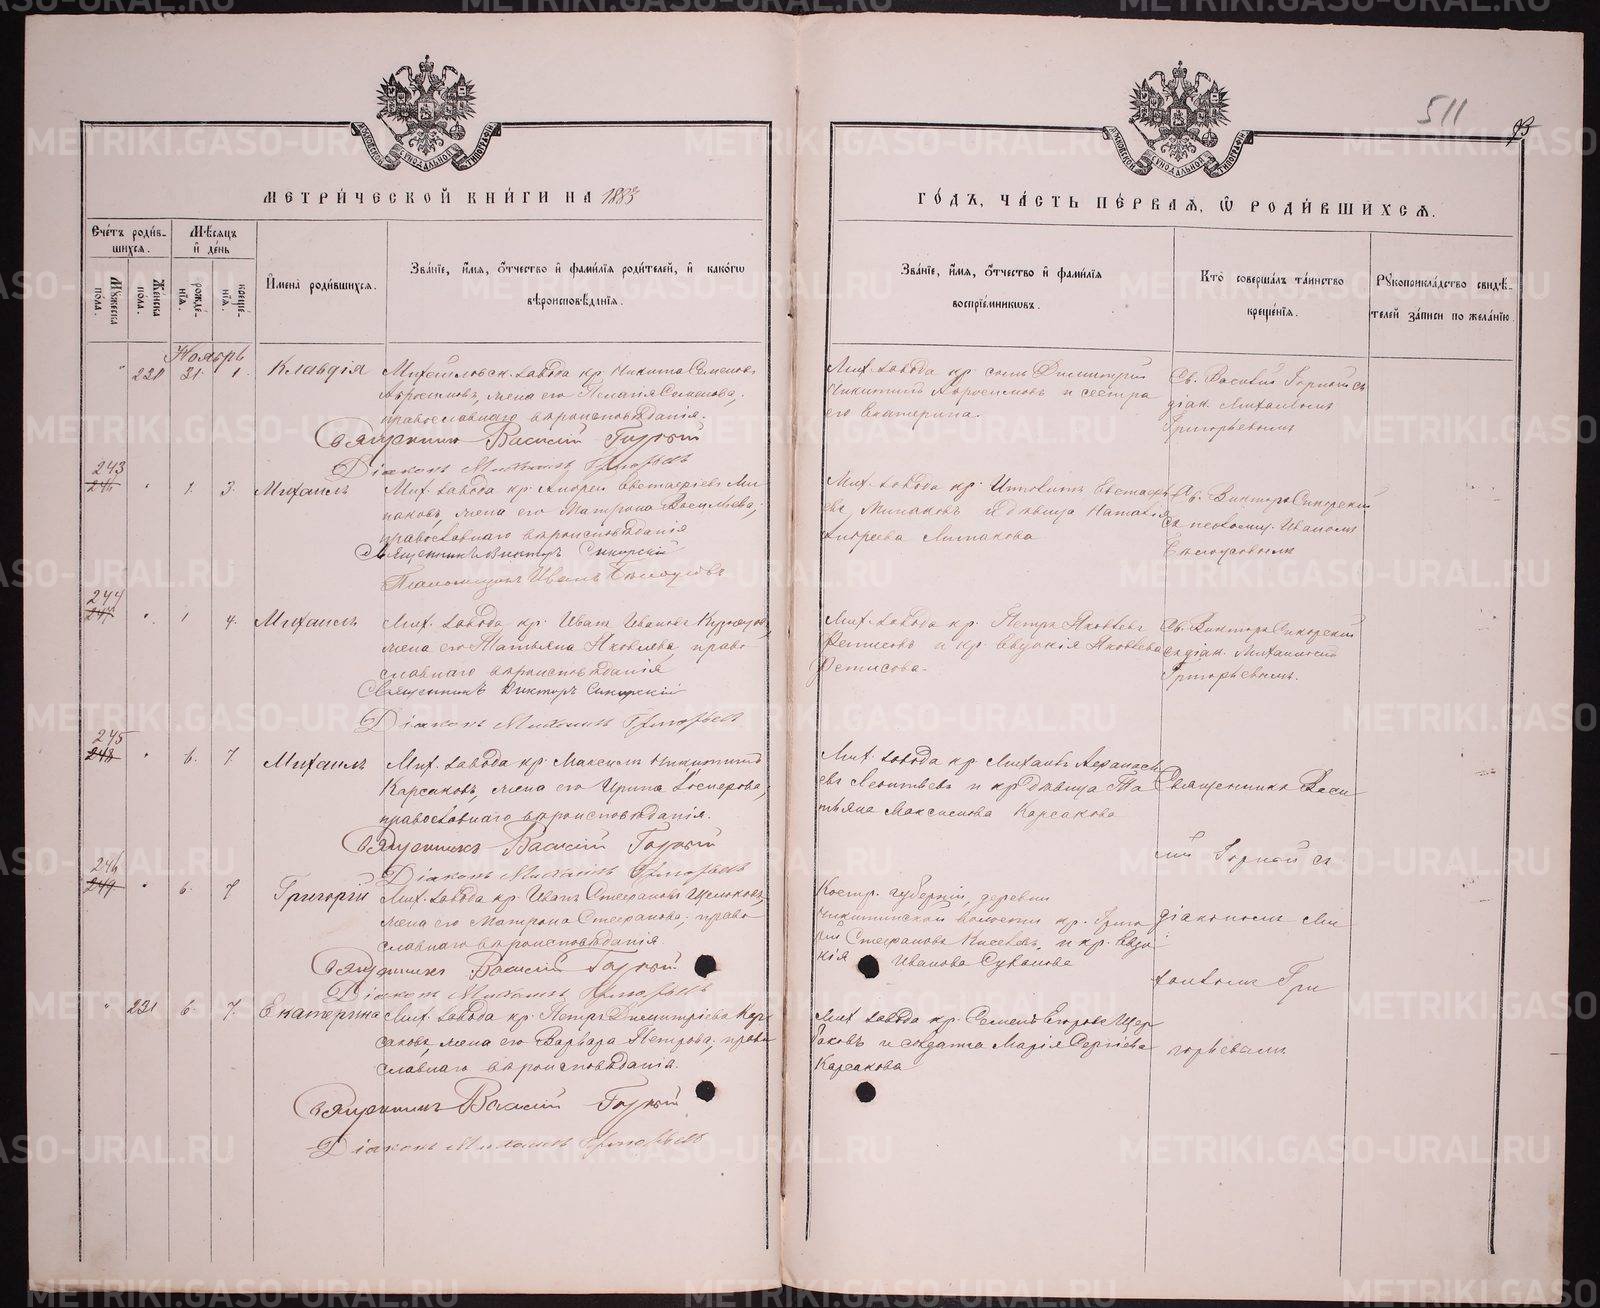 511
93
МЕТРИ́ЧЕСКОЙ КНИ́ГИ НА 1883
ГО́ДЪ, ЧА́СТЬ ПЕ́РВАѦ, Ѿ РОДИ́ВШИХСѦ.
Сче́тъ роди́в-
шихсѧ.
Мꙋжеска по́ла.
Же́нска по́ла.
Мѣ́сѧцъ
и де́нь
рожде́-
нїѧ.
креще́-
нїѧ.
Имена̀ роди́вшихсѧ.
Зва́нїе, и́мѧ, ѻ҆́тчество и҆ фами́лїѧ роди́телей, и҆ како́гѡ
вѣроисповѣ́данїѧ.
Зва́нїе, и́мѧ, ѻ҆́тчество и҆ фами́лїѧ
воспрїе́мникѡвъ.
Кто̀ соверша́лъ та́инство
креще́нїѧ.
Рꙋкоприкла́дство свидѣ́-
телей за́писи по жела́нїю.
Ноябрь
220 31 1. Клавдія
Михайловск. завода кр. Никита Семеновъ
Абросимовъ, жена его Пелагія Семенова,
православнаго вѣроисповѣданія.
Священникъ Василій Горный
Діаконъ Михаилъ Григорьевъ
Мих. завода кр. сынъ Димитрій
Никитинъ Абросимовъ и сестра
его Екатерина.
Св. Василій Горный съ
діак. Михаиломъ
Григорьевымъ
243
246 1. 3. Михаилъ
Мих. завода кр. Андрей Евстафіевъ
жена его Матрона Васильева,
православнаго вѣроисповѣданія
Священникъ Викторъ Сикорскій
Псаломщикъ Иванъ Бѣлоусовъ
Мих. завода кр.
и дѣвица Наталія
Андреева
Св. Викторъ Сикорскій
съ псаломщ. Иваномъ
Бѣлоусовымъ
244
247 1 4. Михаилъ
Мих. завода кр. Иванъ Ивановъ
жена его Татьяна Яковлева, право-
славнаго вѣроисповѣданія
Священникъ Викторъ Сикорскій
Діаконъ Михаилъ Григорьевъ
Мих. завода кр. Петръ Яковлевъ
Фетисовъ и кр. Евдокія Яковлева
Фетисова.
Св. Викторъ Сикорскій
съ діак. Михаиломъ
Григорьевымъ.
245
248 6. 7. Михаилъ
Мих. завода кр. Максимъ Никитинъ
Карсаковъ, жена его Ирина
православнаго вѣроисповѣданія.
Священникъ Василій Горный
Діаконъ Михаилъ Григорьевъ
Мих. завода кр. Михаилъ Афанась-
евъ Леонтьевъ и кр. дѣвица Та-
тьяна Максимова Карсакова
Священникъ Васи-
лій Горный съ
246
249 6. 7 Григорій
Мих. завода кр. Иванъ Стефановъ Щелоковъ,
жена его Матрона Стефанова, право-
славнаго вѣроисповѣданія.
Священникъ Василій Горный
Діаконъ Михаилъ Григорьевъ
Костр. губерніи, деревни
Никитинской волости кр. Григо-
рій Стефановъ и кр. Евдо-
кія Иванова
діакономъ Ми-
хаиломъ Гри-
221 6. 7. Екатерина
Мих. завода кр. Петръ Димитріевъ Кар-
саковъ, жена его Варвара Петрова, право-
славнаго вѣроисповѣданія.
Священникъ Василій Горный
Діаконъ Михаилъ Григорьевъ
Мих. завода кр. Семенъ Егоровъ Щер-
баковъ и солдатка Марія Сергіева
Карсакова
горьевымъ
METRIKI.GASO-URAL.RU